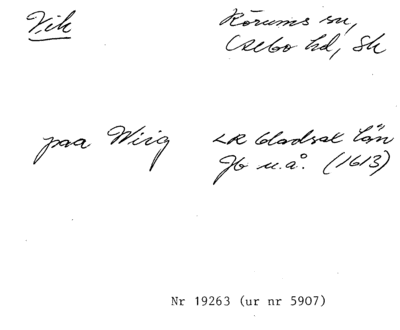 Vik
Rörums sn,
Ingelstads hd, Sk
paa Wiig
LR Gladsax län
Jb u.å. (1613)
Nr 19263 (ur nr 5907)